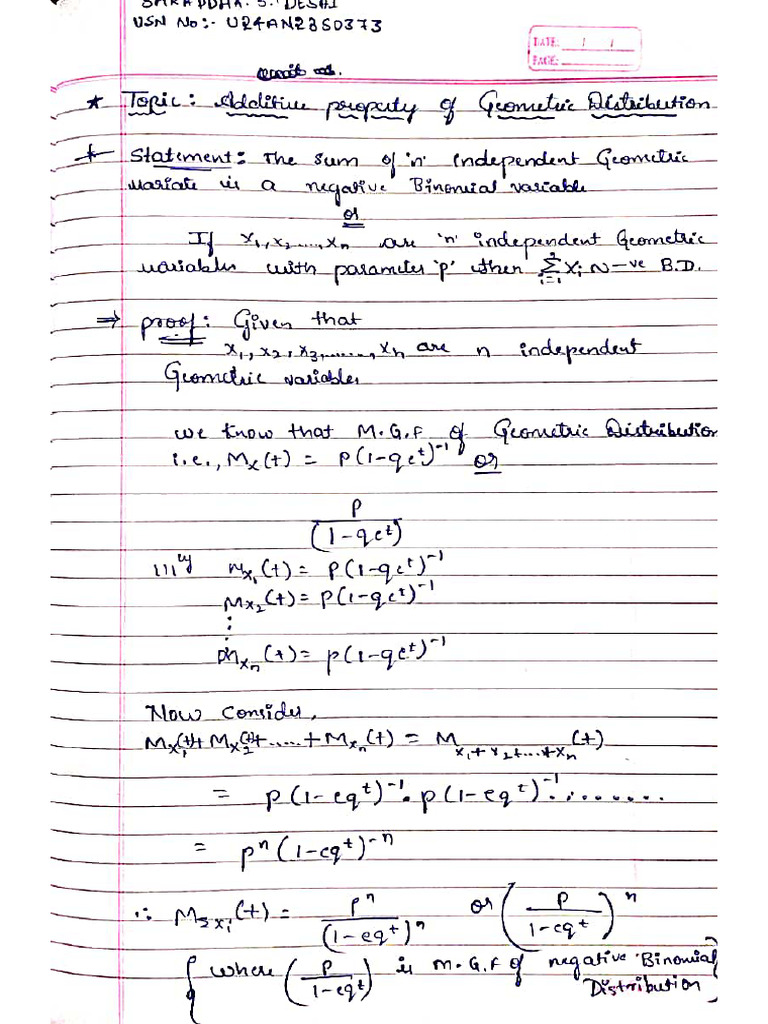 SHRADDHA. S. DESHI
USN No:- U24AN23S0373
DATE: / /
PAGE:
* Topic: Additive property of Geometric Distribution
* Statement: The sum of 'n' independent Geometric
variate is a negative Binomial variable
or
If x₁, x₂ ...., xn are 'n' independent Geometric
variables with parameter 'p' then Σ xi ~ -ve B.D.
i=1
⇒ proof: Given that
x₁, x₂, x₃, ......., xn are n independent
Geometric variables
we know that M.G.F of Geometric Distribution
i.e., Mx(t) = P(1-qeᵗ)⁻¹ or
P
(1-qeᵗ)
|||ly Mx₁(t) = P(1-qeᵗ)⁻¹
Mx₂(t) = p(1-qeᵗ)⁻¹
⋮
Mxn(t) = p(1-qeᵗ)⁻¹
Now consider,
Mx₁(t)+ Mx₂(t)+ ..... + Mxn(t) = M x₁+x₂+...+xn (t)
= p(1-eqᵗ)⁻¹. p(1-eqᵗ)⁻¹.........
= pⁿ(1-eqᵗ)⁻ⁿ
∴ MΣxi(t) = Pⁿ/(1-eqᵗ)ⁿ or (P/1-eqᵗ)ⁿ
{ where (P/1-eqᵗ) is M.G.F of negative Binomial
Distribution }